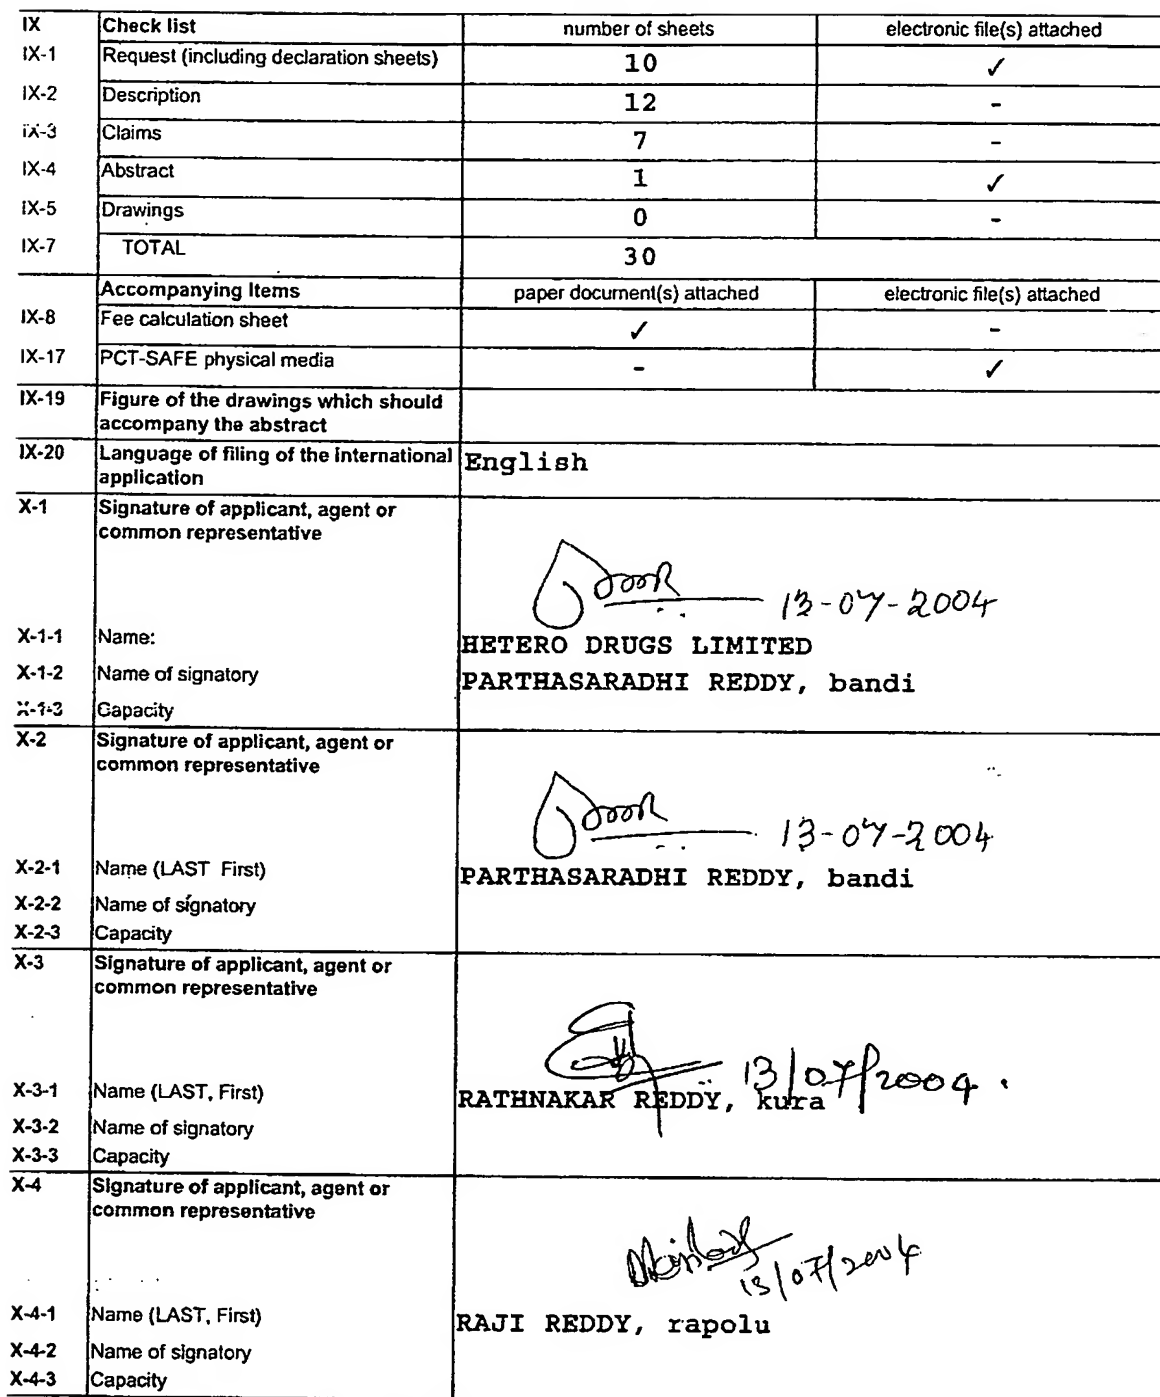 IX Check list number of sheets electronic file(s) attached
IX-1 Request (including declaration sheets) 10 ✓
IX-2 Description 12 -
IX-3 Claims 7 -
IX-4 Abstract 1 ✓
IX-5 Drawings 0 -
IX-7 TOTAL 30
Accompanying Items paper document(s) attached electronic file(s) attached
IX-8 Fee calculation sheet ✓ -
IX-17 PCT-SAFE physical media - ✓
IX-19 Figure of the drawings which should
accompany the abstract
IX-20 Language of filing of the international English
application
X-1 Signature of applicant, agent or
common representative
13-07-2004
X-1-1 Name: HETERO DRUGS LIMITED
X-1-2 Name of signatory PARTHASARADHI REDDY, bandi
X-1-3 Capacity
X-2 Signature of applicant, agent or
common representative
13-07-2004
X-2-1 Name (LAST First) PARTHASARADHI REDDY, bandi
X-2-2 Name of signatory
X-2-3 Capacity
X-3 Signature of applicant, agent or
common representative
13/07/2004.
X-3-1 Name (LAST, First) RATHNAKAR REDDY, kura
X-3-2 Name of signatory
X-3-3 Capacity
X-4 Signature of applicant, agent or
common representative
13/07/2004
X-4-1 Name (LAST, First) RAJI REDDY, rapolu
X-4-2 Name of signatory
X-4-3 Capacity